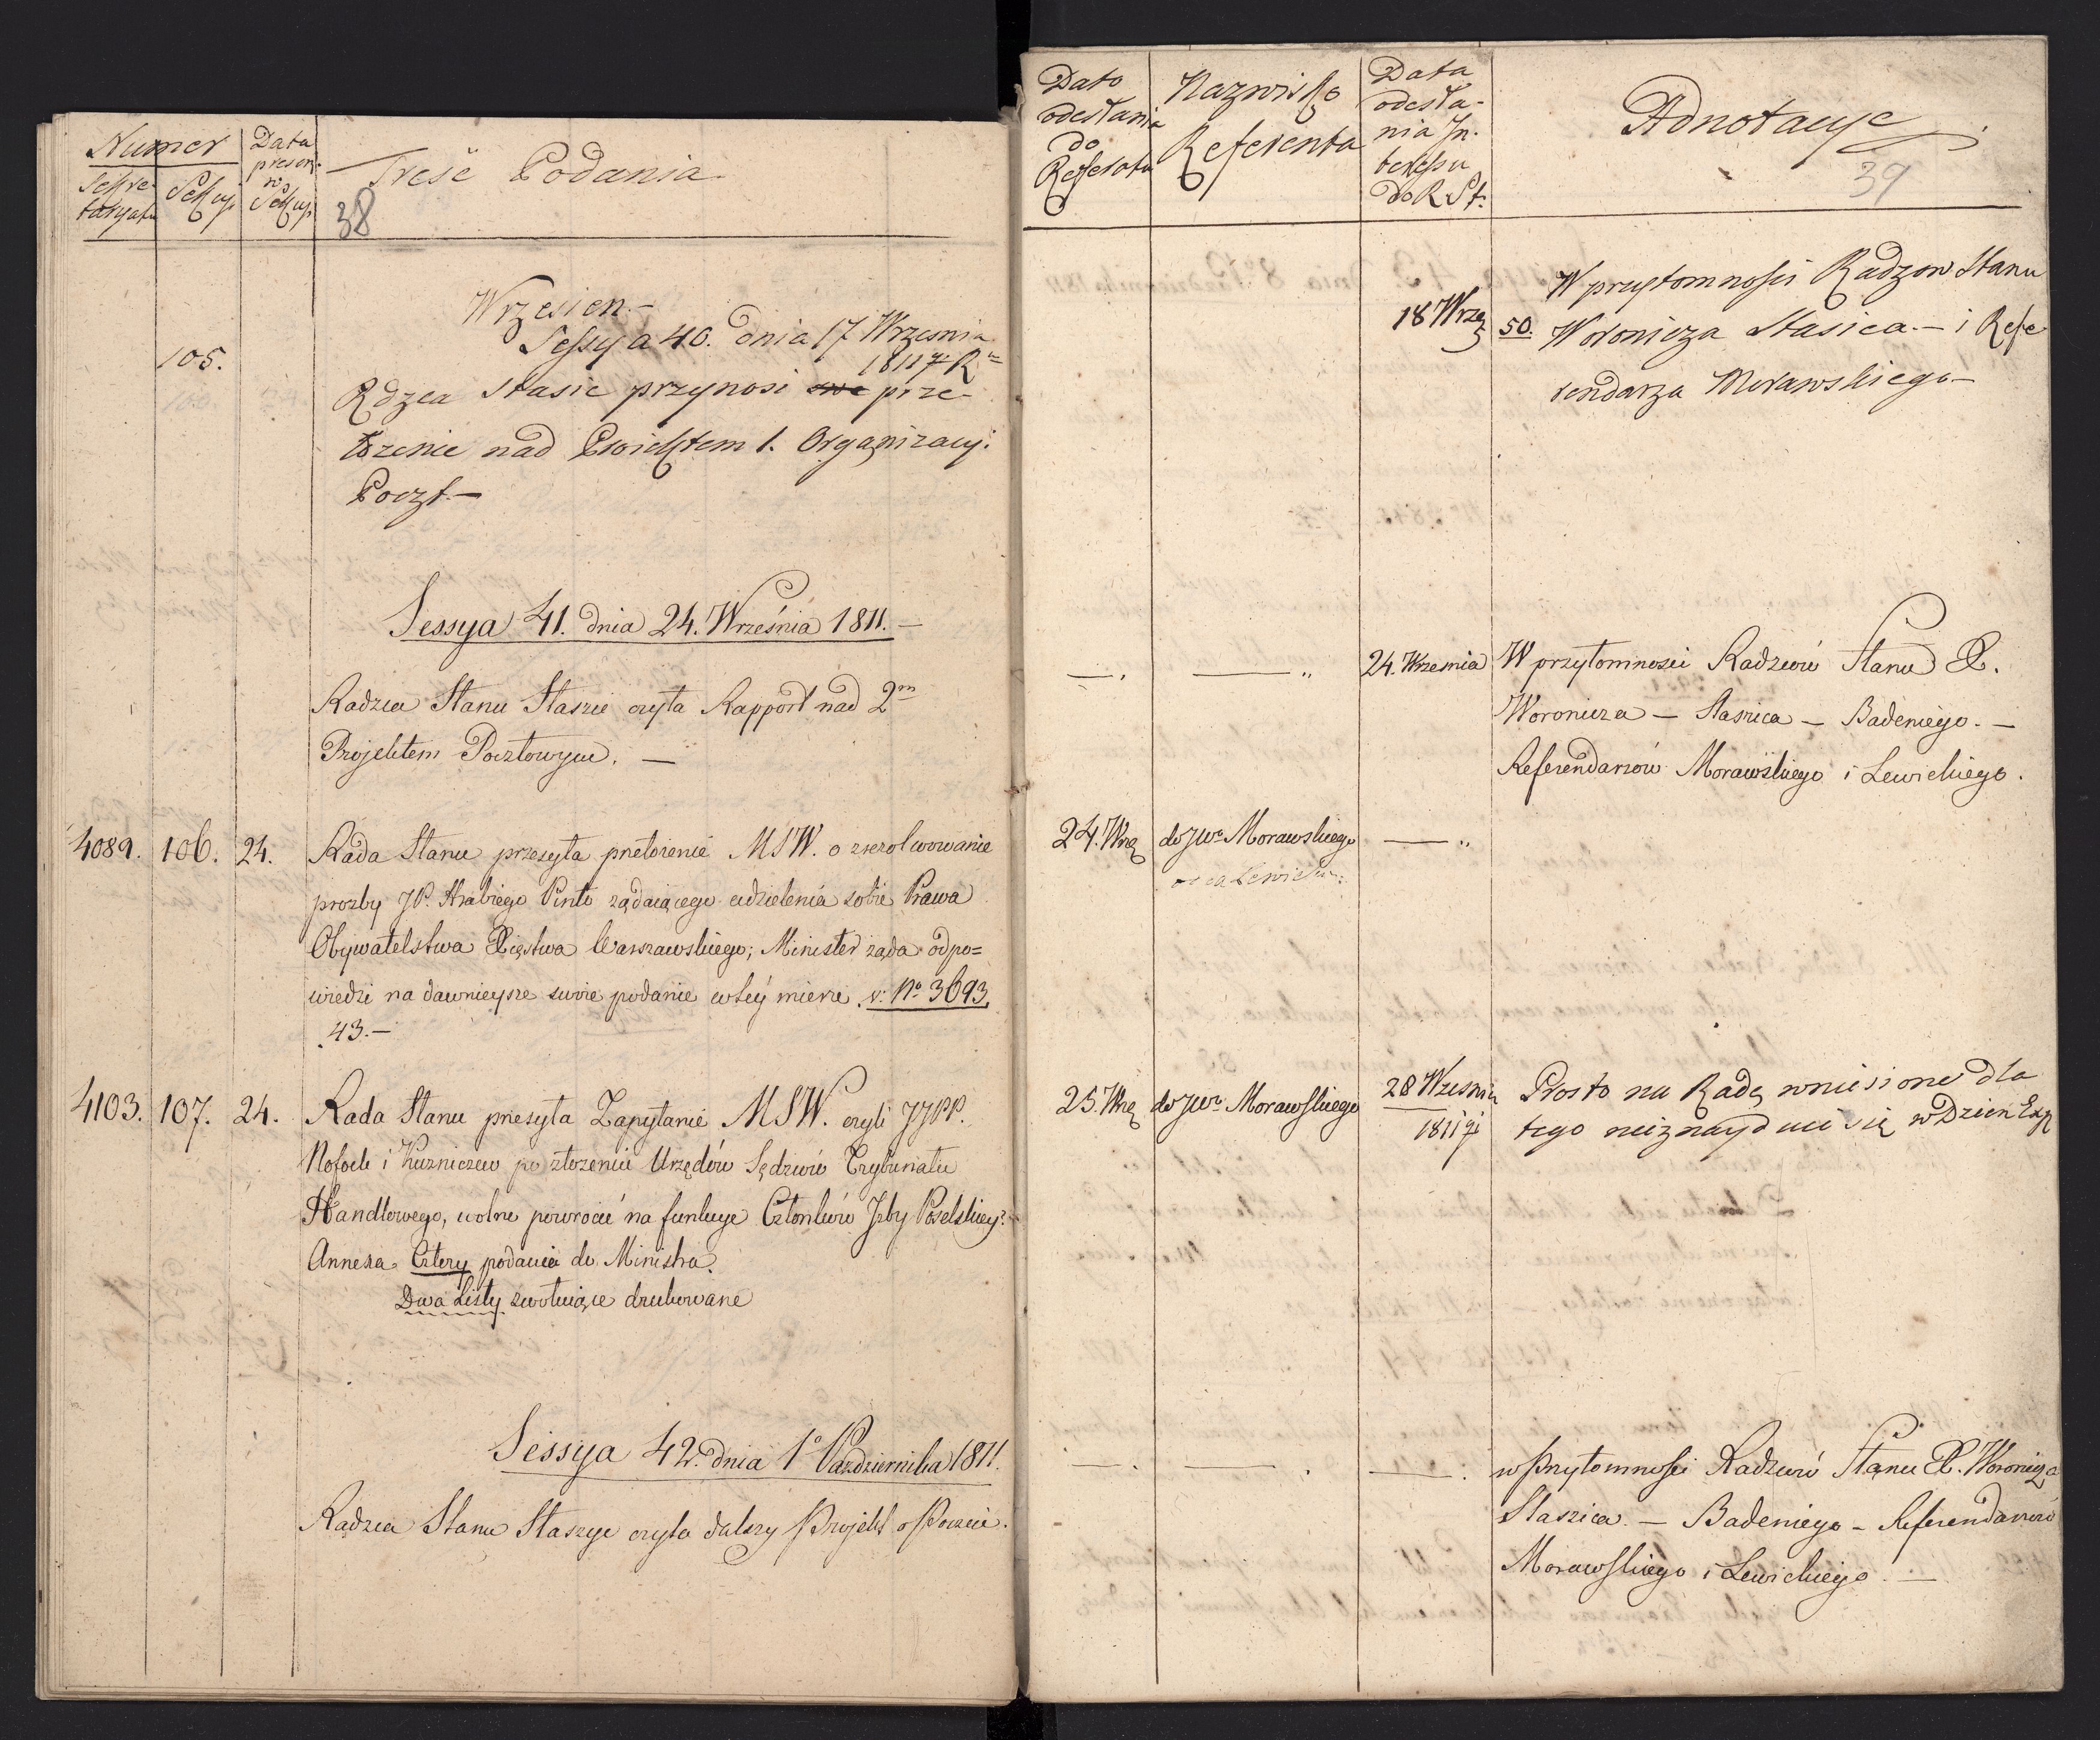 Numer
Data
Sekre-
taryatu
Sekcyi
w
Sekcyi
Treść Podania
38
Wrzesien.—
Sessya 40. dnia 17 Wrzesnia
1811 R
105.
Rdzca Stasic przynosi prze-
łozenie nad Proiektem 1. Organizacyi
Poczt.—
Sessya 41. dnia 24. Września 1811.—
Radzca Stanu Staszic czyta Rapport nad 2m
Projektem Pocztowym. —
4089. 106. 24. Rada Stanu przesyła przełożenie MSW. o zrezolwowanie
prozby JP. Hrabiego Pinto rządaiącego udzielenia sobie Prawa
Obywatelstwa Xięstwa Warszawskiego; Minister rząda odpo=
wiedzi na dawnieysze swoie podanie w tey mierze v: No 3693.
43.—
4103. 107. 24. Rada Stanu przesyła Zapytanie MSW. czyli JJPP.
i Kuzniczew po złożeniu Urzędów Sędziów Trybunału
Handlowego, wolni powrocić na funkcye Członków Izby Poselskiey?
Annexa Cztery podania do Ministra.
Dwa Listy zwołuiące drukowane
Sessya 42. dnia 1o Pazdziernika 1811.
Radzca Stanu Staszyc czyta dalszy Projekt o Poczcie.
Dato
odesłania
do
Referatu
Nazwisko
Referenta
Data
odesła-
nia In-
teressu
do R St.
Adnotacye
39
18 Wrze 50.
W przytomnosci Radzcow Stanu
Woronicza Stasica.— i Refe
rendarza Morawskiego—
24. Wrzesnia W przytomnosci Radzców Stanu X.
Woronicza — Staszica — Badeniego. —
Referendarzów Morawskiego i Lewickiego.
24. Wrz do JW Morawskiego
Lewick
25. Wrz do JW Morawskiego 28 Wrzesnia
1811
Prosto na Radę wniesione dla
tego nieznayduie się w Dzien Exp
w Przytomnosci Radzców Stanu X. Woronicza
Staszica. — Badeniego — Referendarzów
Morawskiego i Lewickiego. —